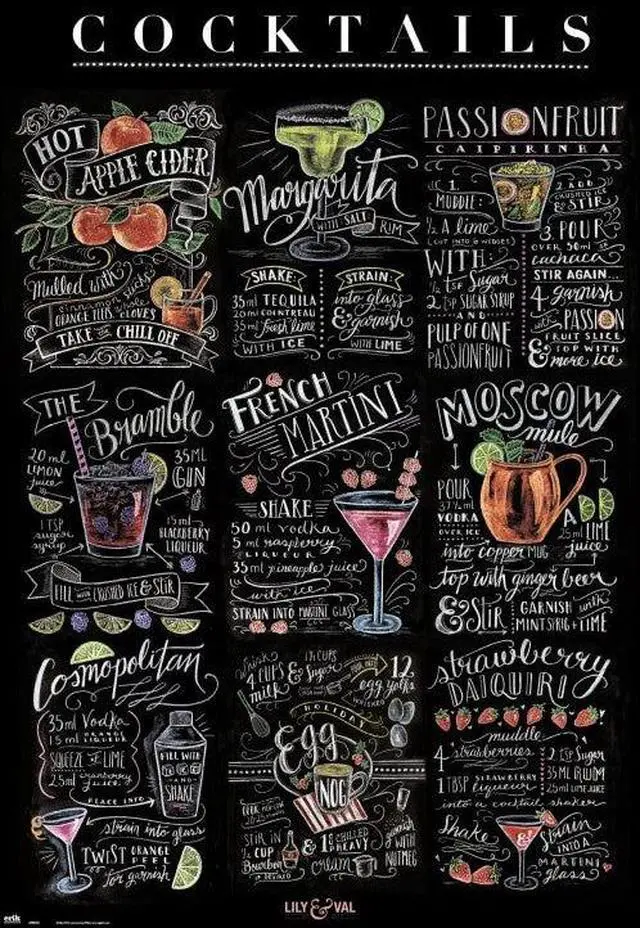 COCKTAILS
HOT
APPLE CIDER
Mulled with
cinnamon sticks
ORANGE PEEL CLOVES
TAKE THE CHILL OFF
Margarita
WITH SALT RIM
SHAKE:
35ml TEQUILA
20ml COINTREAU
35ml fresh lime
WITH ICE
STRAIN:
into glass
& garnish
WITH LIME
PASSIONFRUIT
CAIPIRINHA
1.
MUDDLE:
½ A lime
(CUT INTO 4 WEDGES)
WITH:
½ tsp Sugar
2 tsp SUGAR SYRUP
AND
PULP OF ONE
PASSIONFRUIT
2 ADD
CRUSHED ICE
& STIR
3 POUR
OVER 50ml of
cachaca
STIR AGAIN...
4 garnish
with PASSION
FRUIT SLICE
& TOP WITH
more ice
THE
Bramble
20 ml
LEMON
juice
1 TSP
sugar
syrup
35ML
GIN
15ml
BLACKBERRY
LIQUEUR
FILL WITH CRUSHED ICE & STIR
FRENCH
MARTINI
SHAKE
50 ml vodka
5 ml raspberry
LIQUEUR
35ml pineapple juice
with ice
STRAIN INTO MARTINI GLASS
MOSCOW
mule
POUR
37½ml
VODKA
OVER ICE
A
25ml LIME
juice
into copper MUG
top with ginger beer
& Stir
GARNISH with
MINT SPRIG & LIME
Cosmopolitan
35ml Vodka
15ml ORANGE
LIQUEUR
SQUEEZE OF LIME
25ml cranberry
juice
PLACE INTO
FILL WITH
ICE
AND
SHAKE
strain into glass
TWIST ORANGE
PEEL
for garnish
Whisk
4 CUPS
milk
& Sugar
12
egg yolks
HOLIDAY
Egg
NOG
STIR IN
CUP
Bourbon
& CHILLED
HEAVY
cream
garnish
WITH
NUTMEG
strawberry
DAIQUIRI
muddle
4 strawberries
1 TBSP STRAWBERRY
liqueur
2 TSP Sugar
35 ML RUM
25ml LIME JUICE
into a cocktail shaker
Shake
&
Strain
INTO A
MARTINI
glass
LILY & VAL
erik